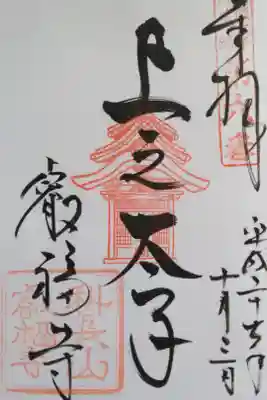 奉拝
上之太子
叡福寺
平成二十年
十月三日
科長山
叡福寺